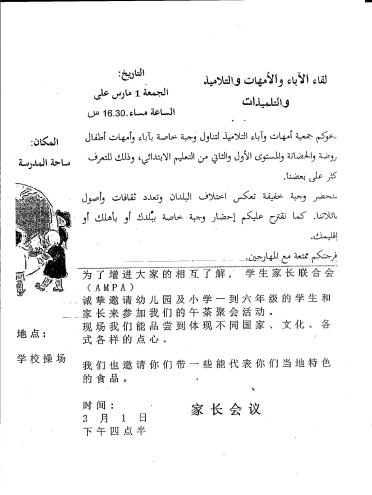 لقاء الآباء والأمهات والتلاميذ
والتلميذات
التاريخ:
الجمعة 1 مارس على
الساعة مساء. 16.30 س
المكان:
ساحة المدرسة
عوكم جمعية أمهات وآباء التلاميذ لتناول وجبة خاصة بآباء وأمهات أطفال
روضة والحضانة والمستوى الأول والثاني من التعليم الابتدائي، وذلك للتعرف
كثر على بعضنا.
نحضر وجبة خفيفة تعكس اختلاف البلدان وتعدد ثقافات وأصول
ائلاتنا. كما نقترح عليكم إحضار وجبة خاصة ببلدك أو بأهلك أو
إقليمك.
فرجتكم ممتعة مع المهارجين.
为了增进大家的相互了解，学生家长联合会
(AMPA)
诚挚邀请幼儿园及小学一到六年级的学生和
家长来参加我们的午茶聚会活动。
现场我们能品尝到体现不同国家、文化、各
式各样的点心。
我们也邀请你们带一些能代表你们当地特色
的食品。
地点：
学校操场
时间：
3 月 1 日
下午四点半
家长会议